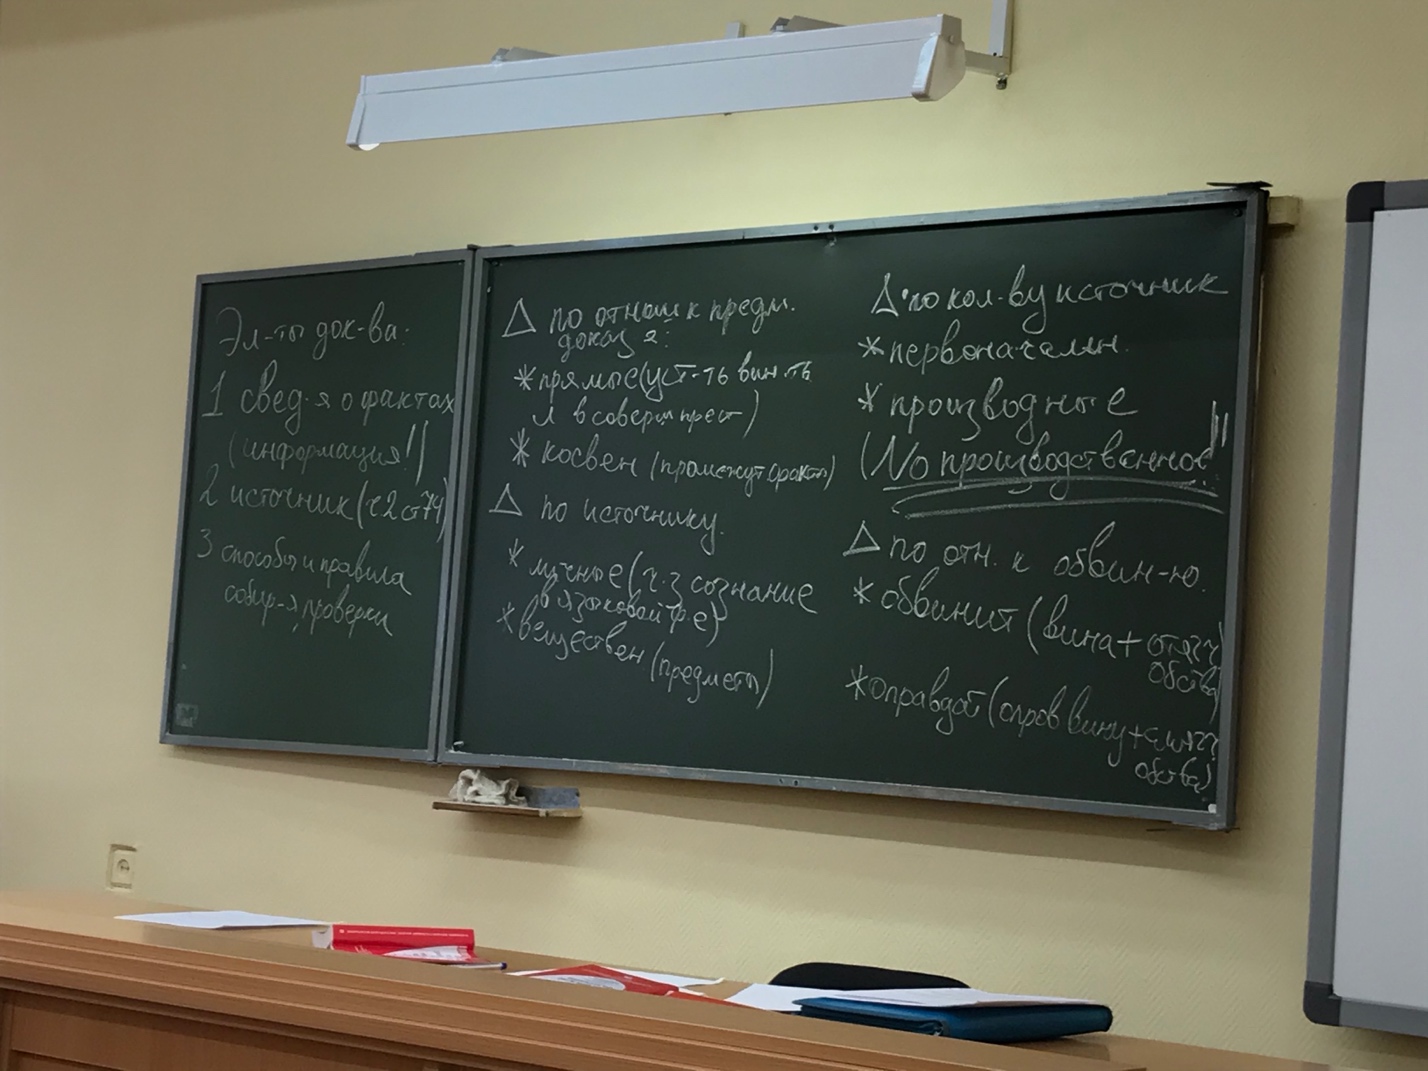 Эл-ты док-ва.
1 свед-я о фактах
(информация!)
2 источник (ч 2 ст 74)
3 способы и правила
собир-я, проверки
△ по отнош к предм.
доказ-я:
* прямые (уст-ть вин-ть
л в соверш прест)
* косвен (промежут факты)
△ по источнику.
* личные (ч-з сознание
в языковой ф-е)
* веществен (предметы)
△ по кол-ву источник
* первоначальн.
* производные
(No производственное!!
△ по отн. к обвин-ю.
* обвинит (вина + отягч
обства)
* оправдат (опров вину + смягч
обства)